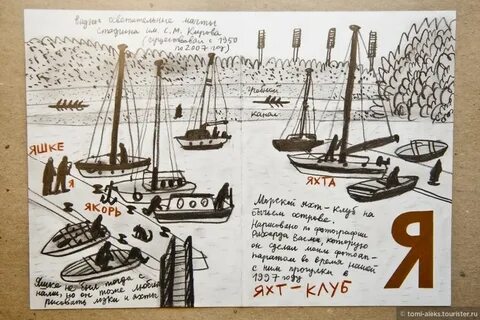 Видны осветительные мачты
стадиона им. С.М. Кирова
(существовал с 1950
по 2007 год)
Гребной
канал
ЯШКЕ
Я
ЯКОРЬ
ЯХТА
Яшки не был тогда с
нами, но он тоже любил
рисовать лодки и яхты
Морской яхт-клуб на
бычьем острове.
Нарисовано по фотографии
Рихарда Васми, которую
он сделал моим фотоап-
паратом во время нашей
с ним прогулки в
1997 году
ЯХТ-КЛУБ
Я
tomi-aleks.tourister.ru